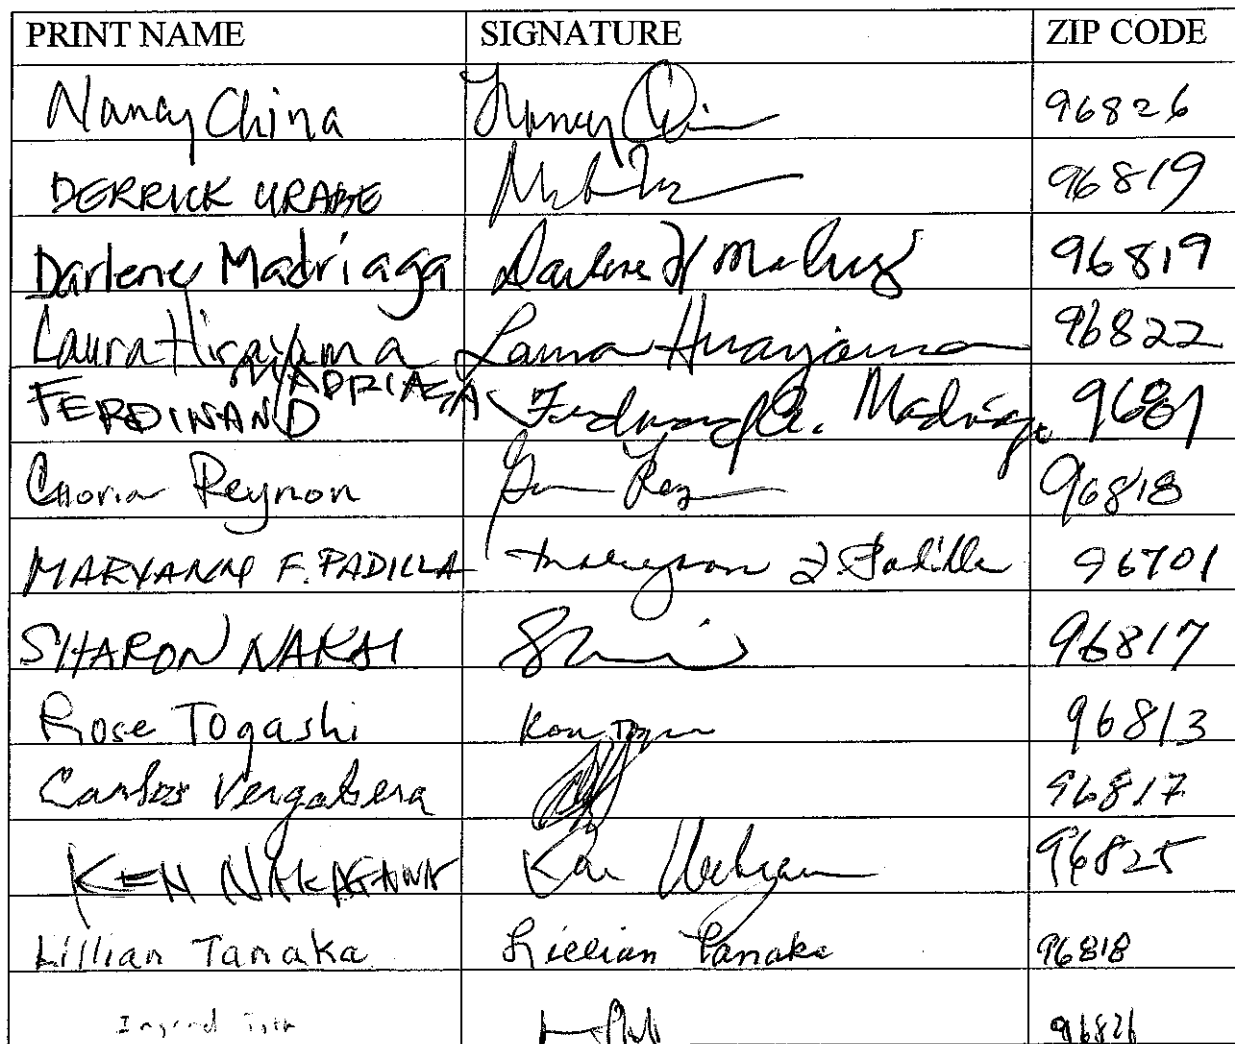 PRINT NAME SIGNATURE ZIP CODE
Nancy China Nancy 96826
DERRICK URABE 96819
Darlene Madriaga Darlene 96819
Laura Hirayama Laura Hirayama 96822
FERDINAND MADRIAGA Ferdinand Madriaga 9681
Reynon 96818
MARYANN F. PADILLA Maryann F. Padilla 96701
SHARON NAKAI 96817
Rose Togashi 96813
Carlos Vergabera 96817
KEN NAKAGAWA Ken 96825
Lillian Tanaka Lillian Tanaka 96818
96826